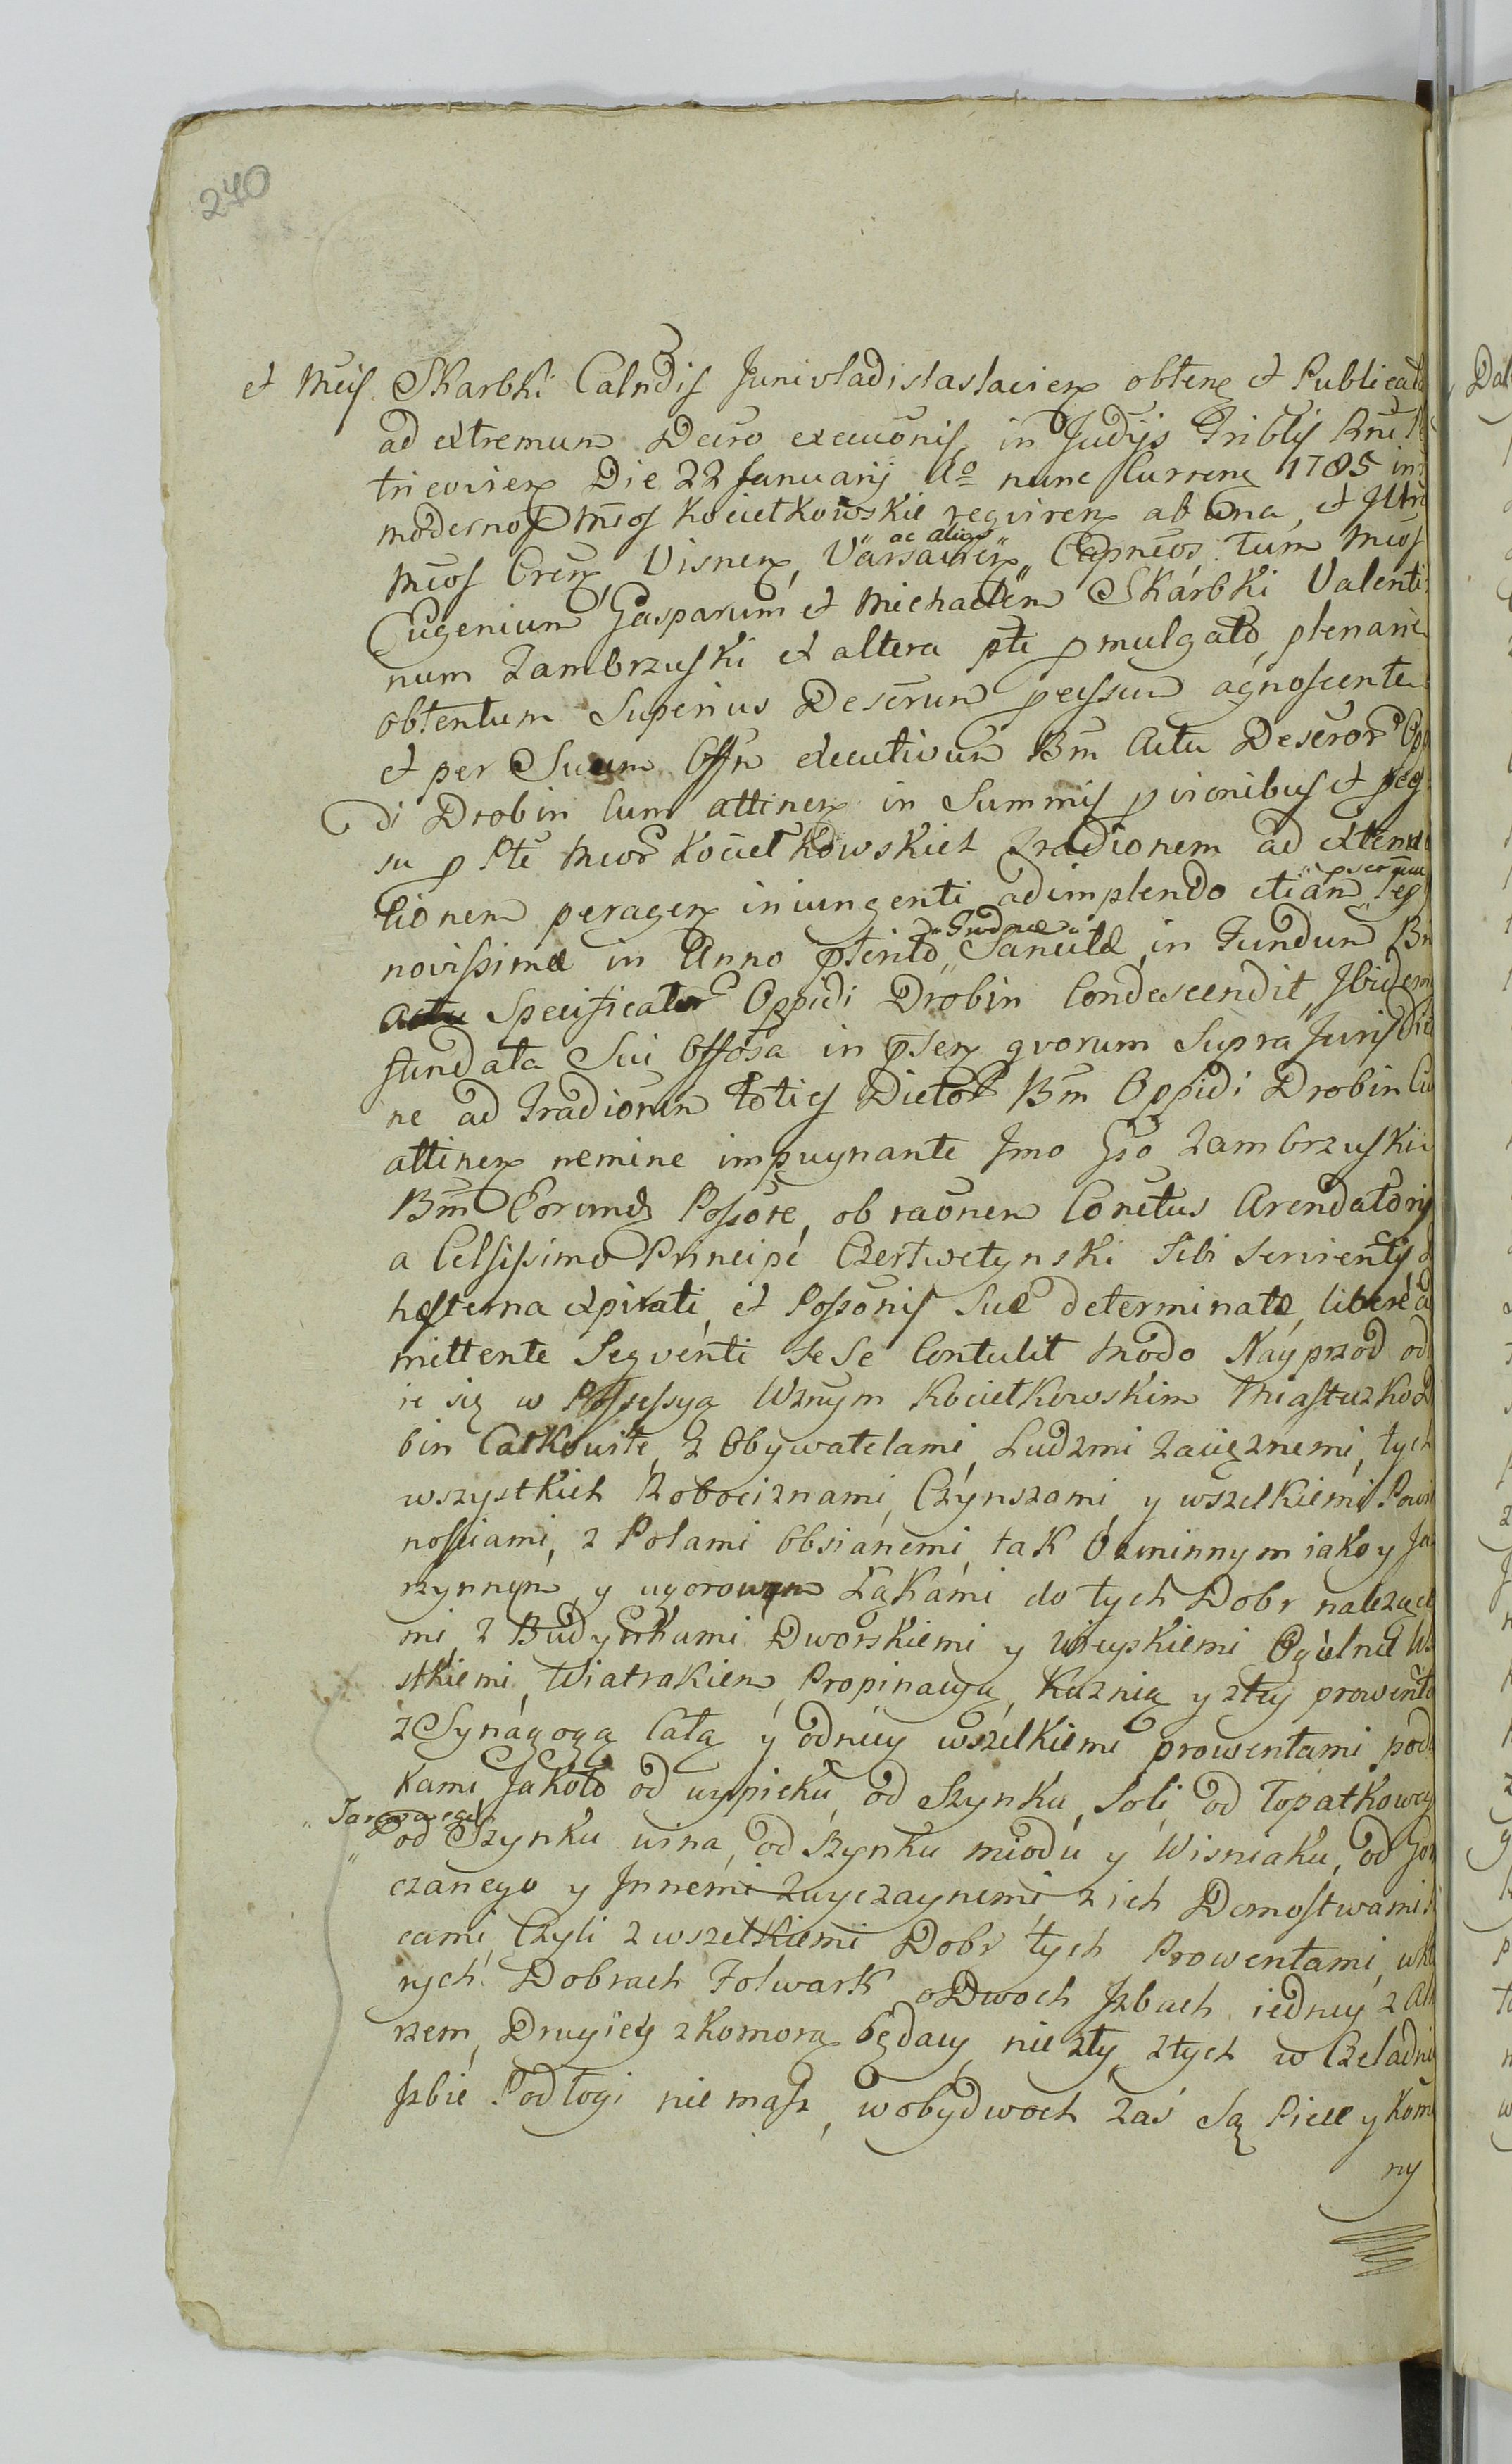 240
et Mcis Skarbki Calndis Junivladislavien obten et Publicato
ad extremum Decro execuonis in Judijs Tribtis Rni
tricovien Die 22 Januarij Ao nunc Curren 1785 in
modernos Mcos Kocielkowskie requiren ab una, et Jltr
Mcos Cren, Visnen, Varsavien „ac alios„ Capneos tum Mcos
Eugenium Gasparum et Michaelem Skarbki Valenti
num Zambrzuski et altera pte pmulgato, plenarie
obtentum Superius Descrum pcissum agnoscente
et per Suum Offn executivum Bm Actu Descror Oppi
di Drobin Cum attinen in Summis pvionibus et
su p Pte Mcor Kocielkowskich Tradionem ad extenu
tionem peragen iniungenti adimplendo etiam
novissimæ in Anno pterito „Grodnæ„ Sancitæ in Fundum Bm
Specificator Oppidi Drobin Condescendit, Jbidem
fundata Sui Offosa in psen quorum Supra Jurisdic
ne ad Tradionem toties Dictor Bm Oppidi Drobin Cu
attinen nemine impugnante Jmo Gso Zambrzuski
Bm Eorumdz Possore, ob raonem Conctus Arendatorij
a Celsissimo Principe Czertwetynski Sibi Servientis
hesterna expirati, et Possonis Suæ determinatæ, libere ad
mittente Seqventi Se Se Contulit Modo Nayprzod od
ie się w Possessyą Wznym Kocielkowskim Miasteczko
bin Całkowite, z Obywatelami, Ludzmi Zaciężnemi, tych
wszystkich Robociznami, Czynszami y wszelkiemi Powin
nościami, z Polami Obsianemi, tak Oziminnym iako y Ja
rzynnym y ugorowym Łąkami do tych Dobr należące
mi, z Budynkami Dworskiemi y Wieyskiemi Ogulnie Ws
stkiemi, Wiatrakiem, Propinacyą, Kuznią y ztey prowento
z Synagogą Całą y odniey wszelkiemi prowentami pod
kami Jakoto od wypieku, od Szynku, Soli, od Łopatkowey
„Targowego„
od Szynku wina, od Szynku miodu y Wisniaku, od Gor
czanego y Jnnemi zwyczaynemi, z ich Domostwami
cami, Czyli z wszelkiemi Dobr tych Prowentami, wkto
rych Dobrach Folwark o Dwoch Jzbach iedney z Alk
rzem, Drugiey z Komorą będący nie zły, ztych w Czeladni
Jzbie Podłogi nie masz, w obydwoch zaś Są Piece y Komi
ny